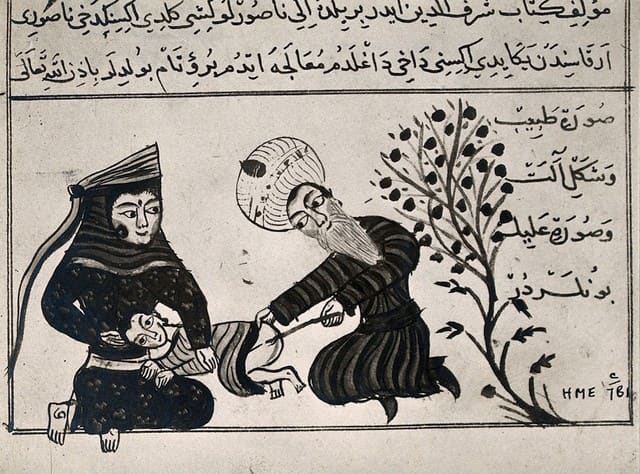 مؤلف كتاب شرف الدين ايدر بر يلده ناصورلو كشي كلدي ناصوري
ارقاسندن يكايدي اكسني داخي داغلدم معالجه ايدم برؤ تام بولدلر باذن الله تعالى
صورة طبيب
وشكل آلت
وصورة عليل
بونلردر
HME